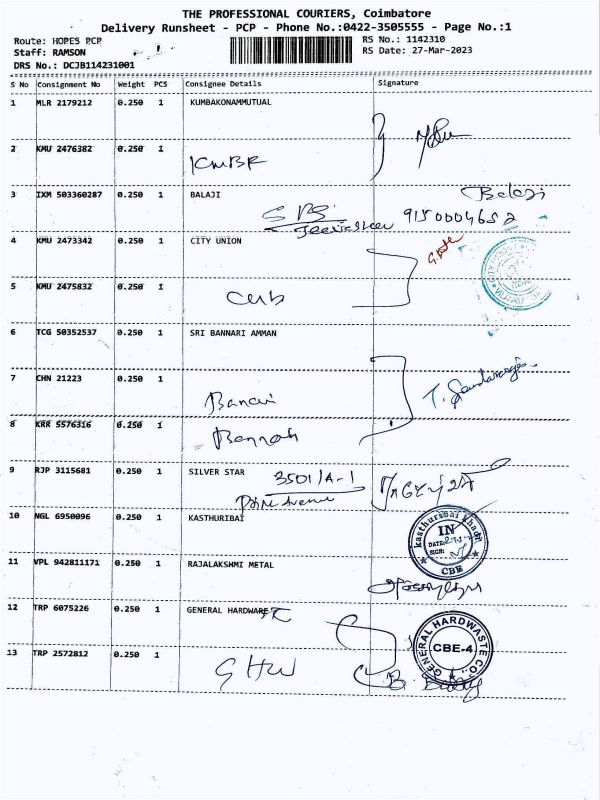 THE PROFESSIONAL COURIERS, Coimbatore
Delivery Runsheet - PCP - Phone No.:0422-3505555 - Page No.:1
Route: HOPES PCP
Staff: RAMSON
DRS No.: DCJB114231001
RS No.: 1142310
RS Date: 27-Mar-2023
S No Consignment No Weight PCS Consignee Details Signature
1 MLR 2179212 0.250 1 KUMBAKONAMMUTUAL
2 KMU 2476382 0.250 1
KMBF
3 IXM 503360287 0.250 1 BALAJI
Balaji
9150004652
4 KMU 2473342 0.250 1 CITY UNION
5 KMU 2475832 0.250 1
Cub
6 TCG 50352537 0.250 1 SRI BANNARI AMMAN
7 CHN 21223 0.250 1
Banari
8 KRR 5576316 0.250 1
Bannah
9 RJP 3115681 0.250 1 SILVER STAR
3501/A-1
10 NGL 6950096 0.250 1 KASTHURIBAI
kasthuribai khadi
IN
DATE:
SIGN:
CBE
11 VPL 942811171 0.250 1 RAJALAKSHMI METAL
12 TRP 6075226 0.250 1 GENERAL HARDWARE
GENERAL HARDWASTE CO
CBE-4
13 TRP 2572812 0.250 1
GHW